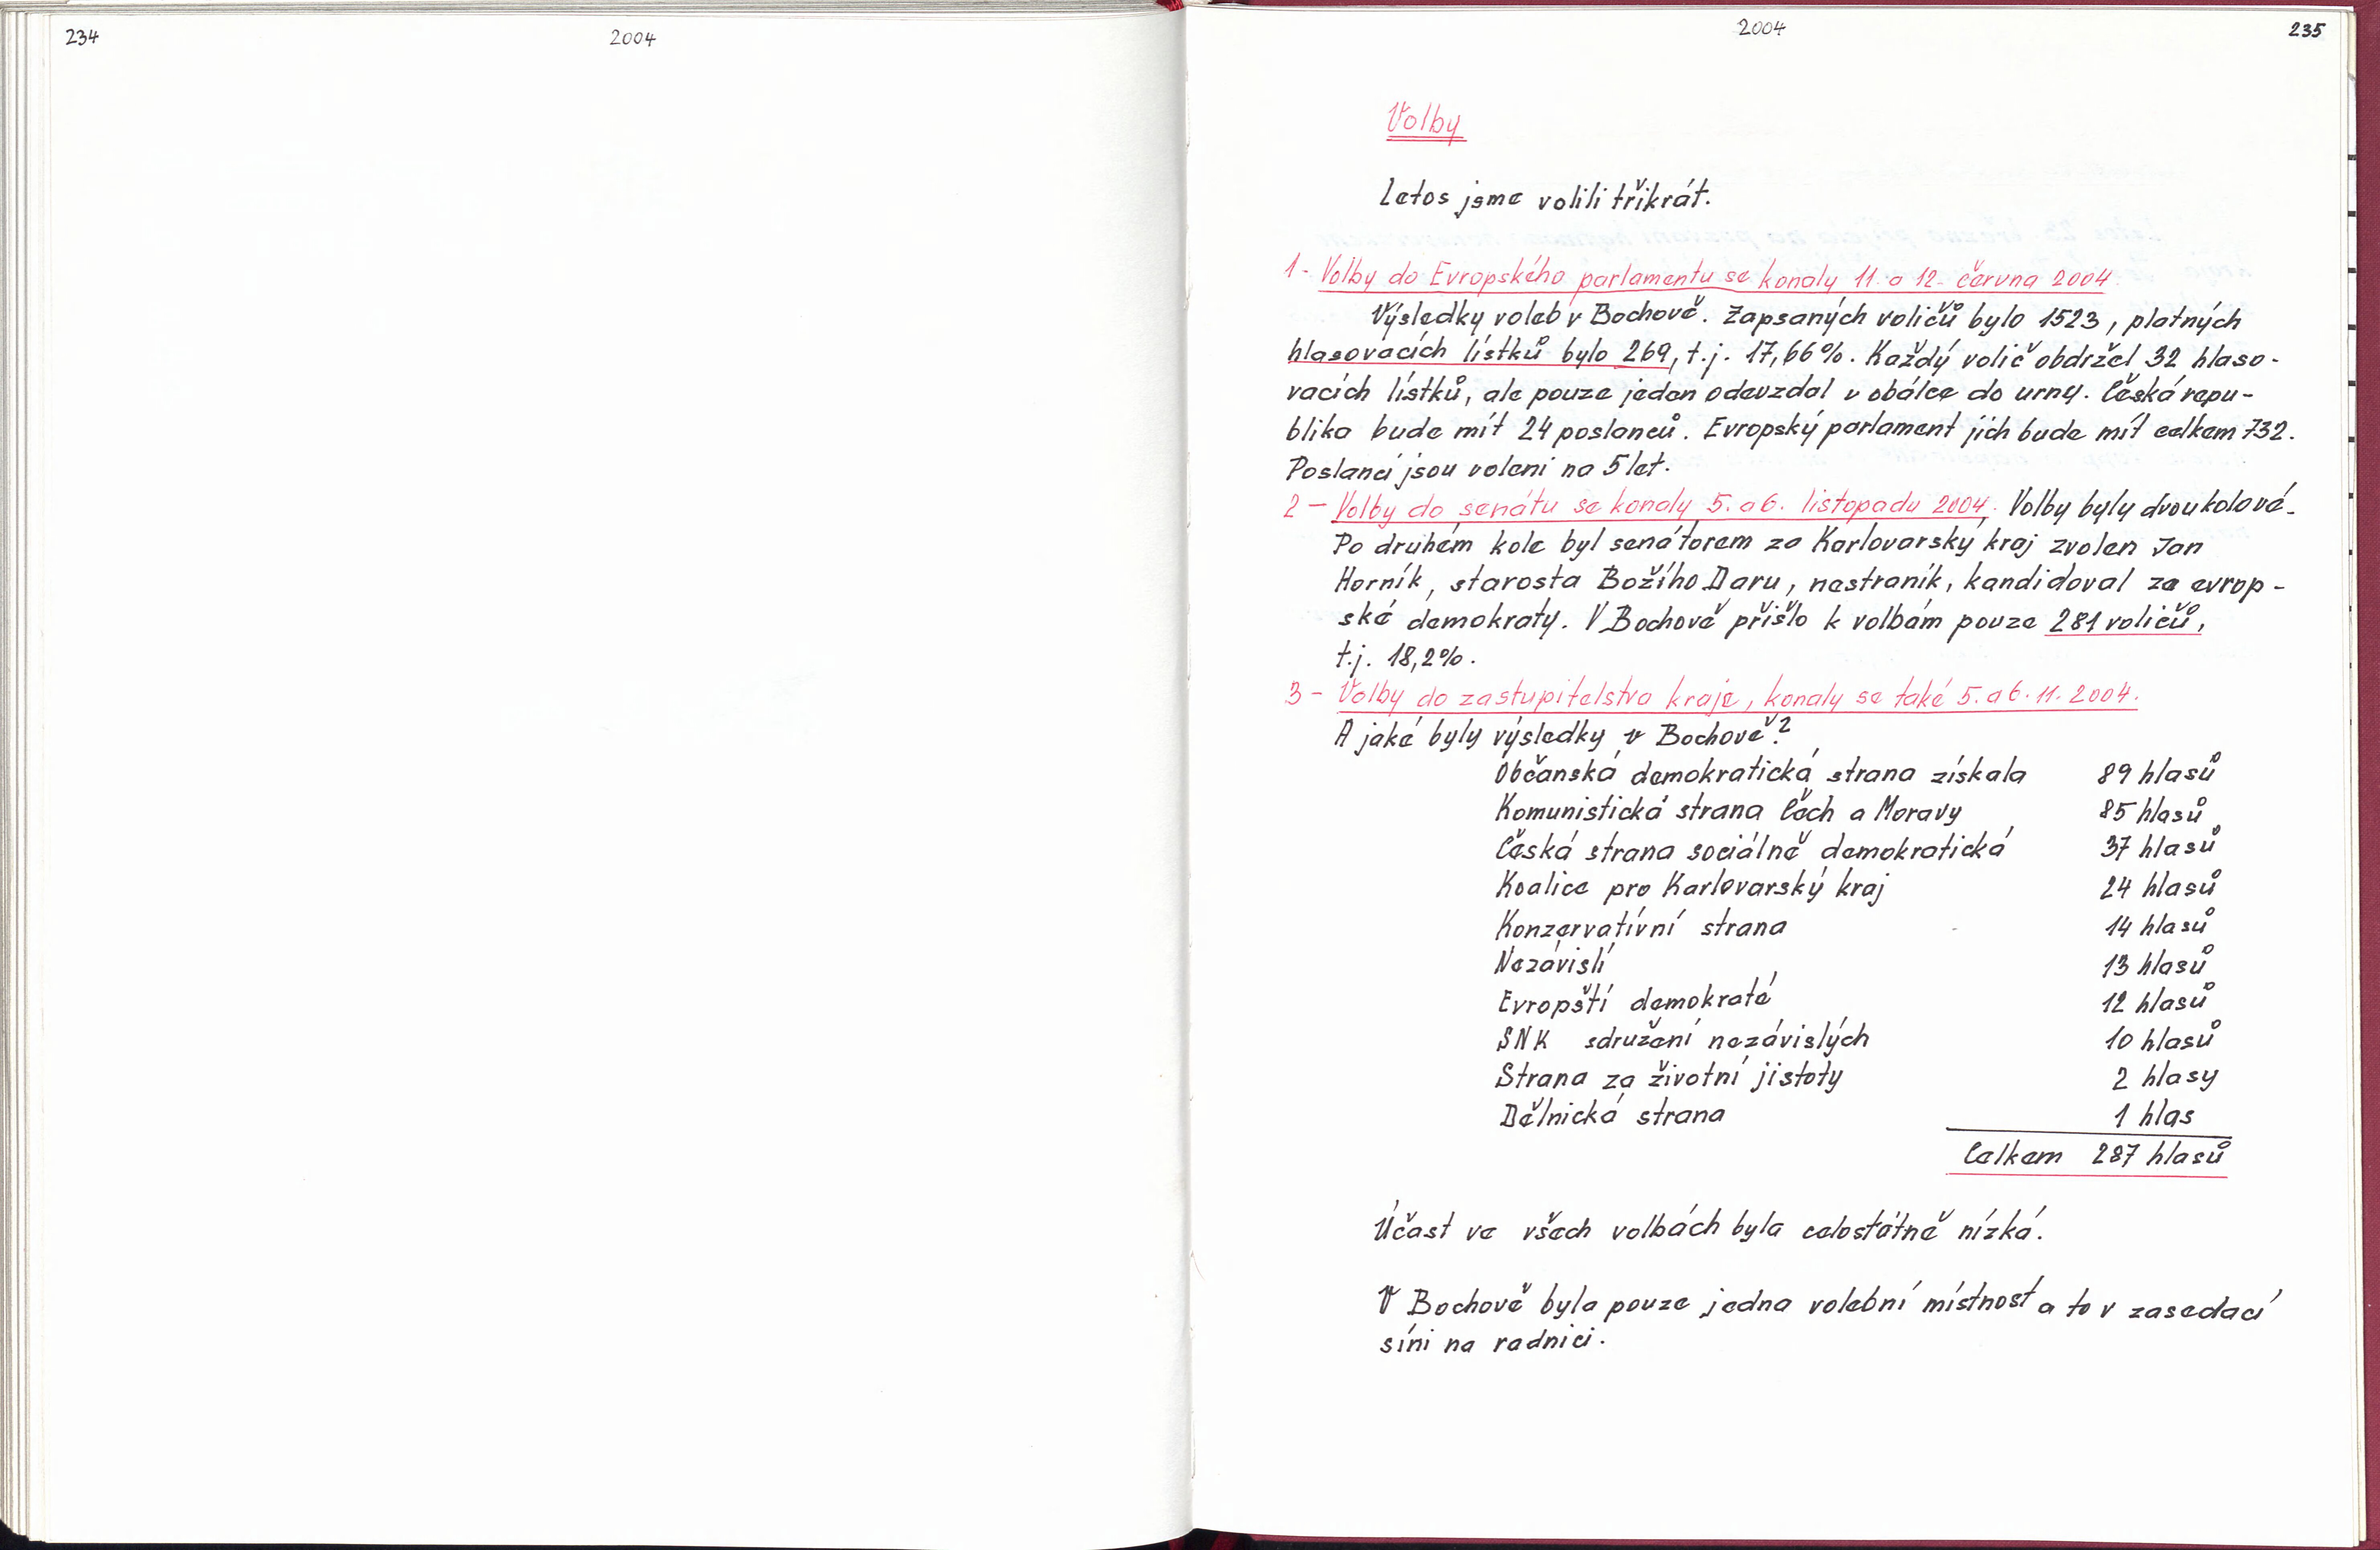 234
2004
2004
235
Volby
Letos jsme volili třikrát.
1- Volby do Evropského parlamentu se konaly 11. a 12. června 2004
Výsledky voleb v Bochově. Zapsaných voličů bylo 1523, platných
hlasovacích lístků bylo 269, t.j. 17,66%. Každý volič obdržel 32 hlaso-
vacích lístků, ale pouze jeden odevzdal v obálce do urny. Česká repu-
blika bude mít 24 poslanců. Evropský parlament jich bude mít celkem 732.
Poslanci jsou voleni na 5 let.
2 - Volby do senátu se konaly 5. a 6. listopadu 2004. Volby byly dvoukolové.
Po druhém kole byl senátorem za Karlovarský kraj zvolen Jan
Horník, starosta Božího Daru, nestraník, kandidoval za evrop-
ské demokraty. V Bochově přišlo k volbám pouze 281 voličů,
t.j. 18,2%.
3 - Volby do zastupitelstva kraje, konaly se také 5. a 6. 11. 2004.
A jaké byly výsledky v Bochově?
Občanská demokratická strana získala 89 hlasů
Komunistická strana Čech a Moravy 85 hlasů
Česká strana sociálně demokratická 37 hlasů
Koalice pro Karlovarský kraj 24 hlasů
Konzervatívní strana 14 hlasů
Nezávislí 13 hlasů
Evropští demokraté 12 hlasů
SNK sdružení nezávislých 10 hlasů
Strana za životní jistoty 2 hlasy
Dělnická strana 1 hlas
Celkem 287 hlasů
Účast ve všech volbách byla celostátně nízká.
V Bochově byla pouze jedna volební místnost a to v zasedací
síni na radnici.